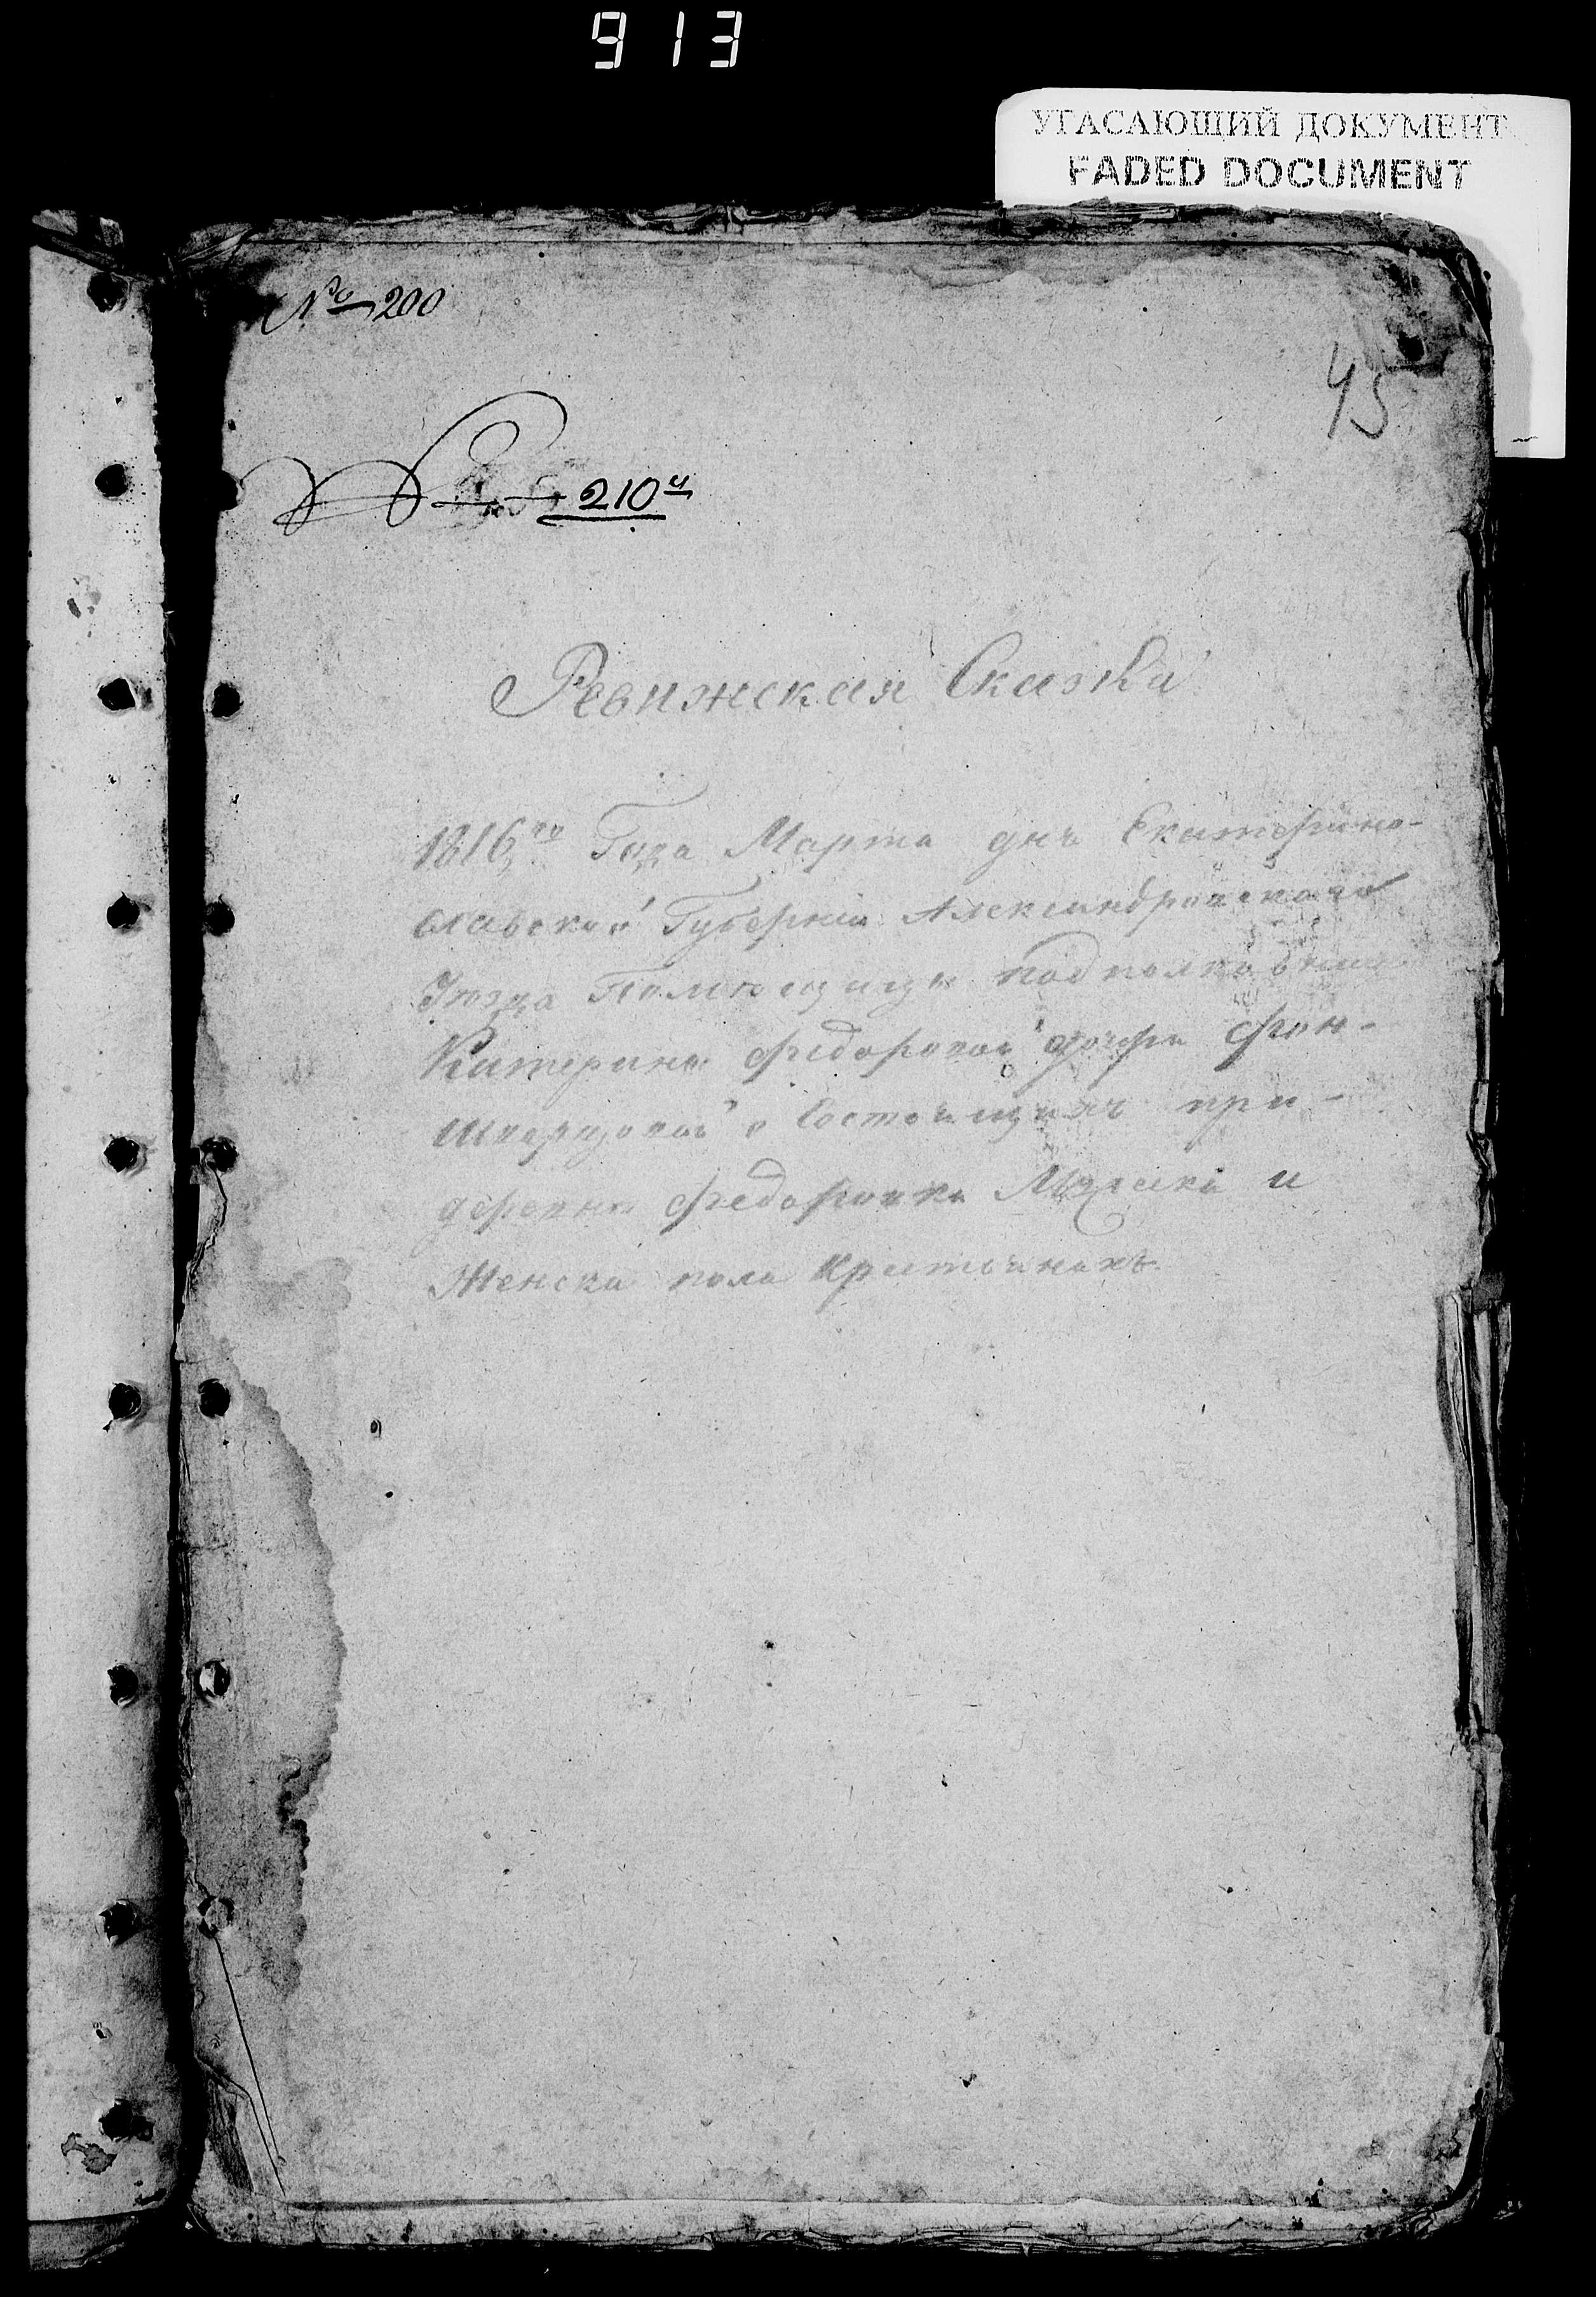 913
УГАСАЮЩИЙ ДОКУМЕНТ
FADED DOCUMENT
№ 200
45
210й
Ревижская Сказка
1816го Года Марта дня Екатерино-
славской Губерніи Александровскаго
Уезда Помещицы подполковницы
Катерины Федоровой дочери фон-
Шверцовой о состоящихъ при-
деревне Федоровки Мужска и
Женска пола Крестьянахъ.